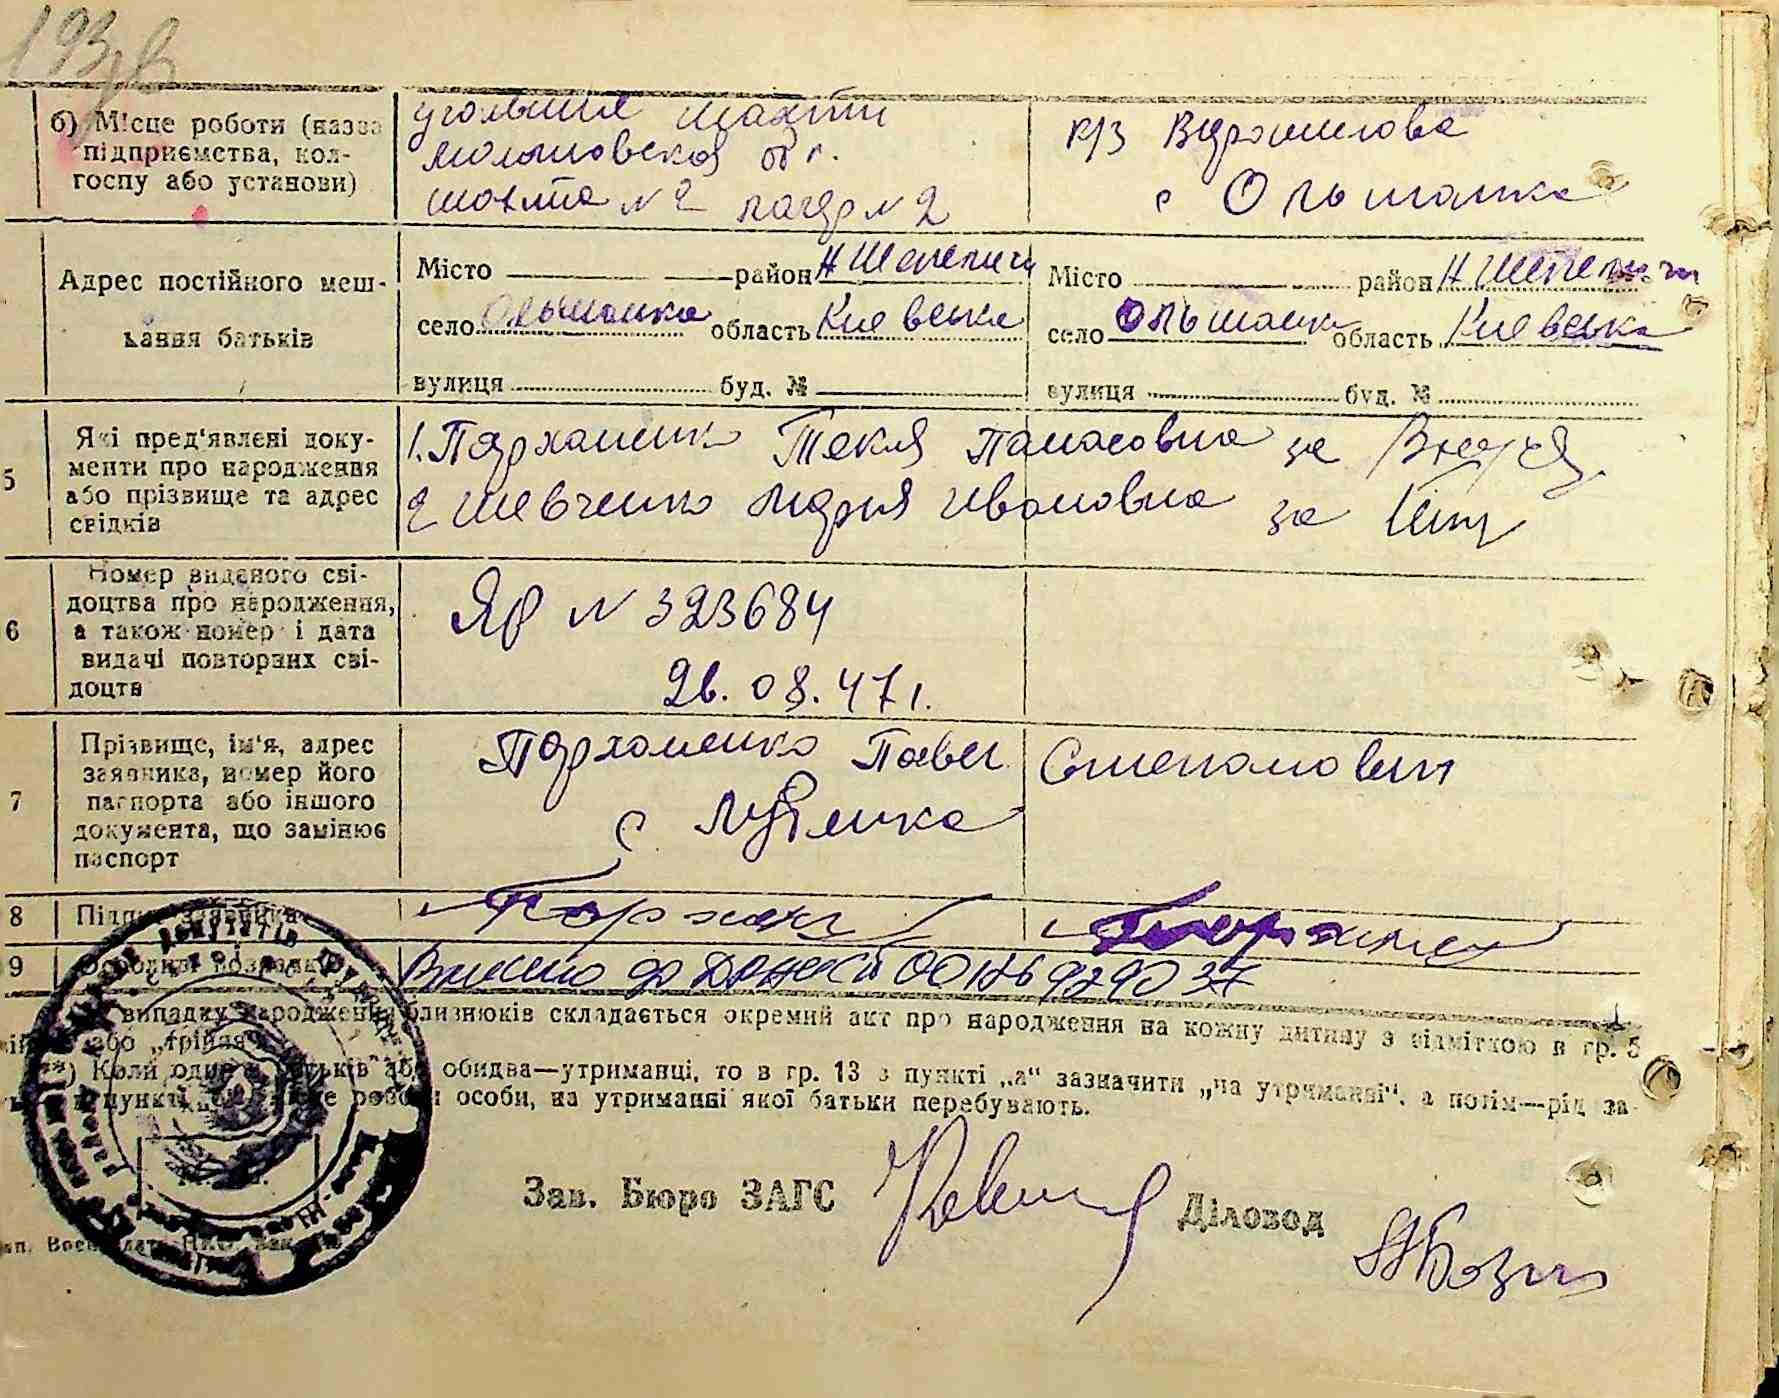 193
б) Місце роботи (назва
підприємства, кол-
госпу або установи)
угольния шахти
молотовская обл.
шахта N 2 лагер N 2
к/з Ворошилова
с Ольшанка
Адрес постійного меш-
кання батьків
Місто район Н Шепеличи
село Ольшанка область Киевська
вулиця буд. №
Місто район Н Шепеличи
село Ольшанка область Киевська
вулиця буд. №
5
Які пред'явлені доку-
менти про народження
або прізвище та адрес
свідків
1. Пархоменко Текля Панасовна за
2 Шевченко Мария Ивановна за
6
Номер виданого сві-
доцтва про народження,
а також номер і дата
видачі повторних сві-
доцтв
ЯР N 323684
26.08.47 г.
7
Прізвище, ім'я, адрес
заявника, номер його
паспорта або іншого
документа, що замінює
паспорт
Пархоменко Павел Степанович
с Лубянка
8
Підпис заявника
9
Особливі розрядки
Внесено до ДРАЦС 00126929037
випадку народження близнюків складається окремий акт про народження на кожну дитину з відміткою в гр. 5
або „трійня“
**) Коли один з батьків або обидва—утриманці, то в гр. 13 в пункті „а“ зазначити „на утриманні“, а потім—рід за-
пункті роботи особи, на утриманні якої батьки перебувають.
Зав. Бюро ЗАГС
Діловод